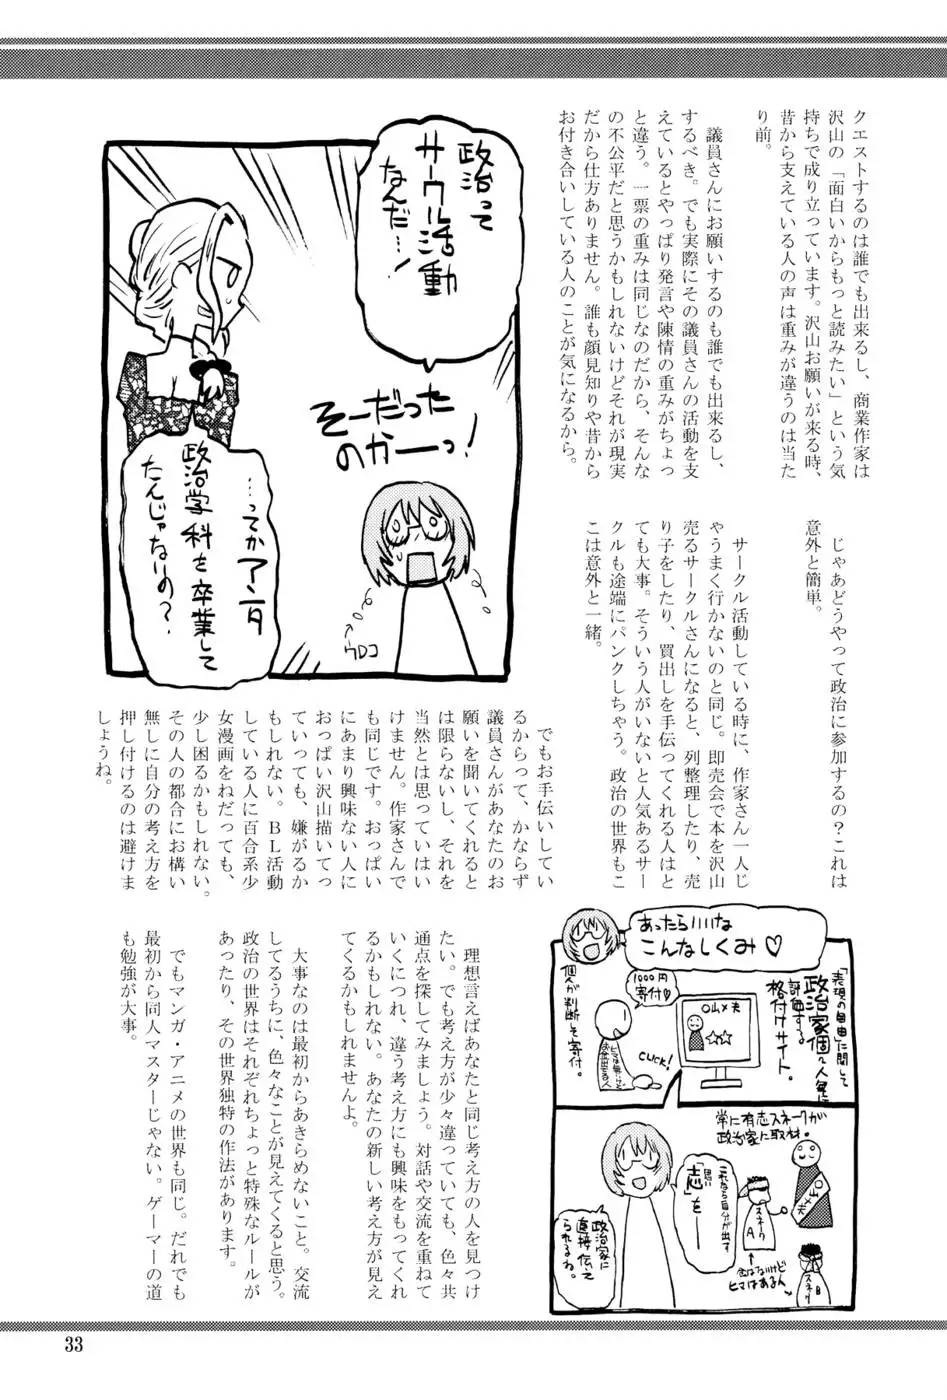 クエストするのは誰でも出来るし、商業作家は
沢山の「面白いからもっと読みたい」という気
持ちで成り立っています。沢山お願いが来る時、
昔から支えている人の声は重みが違うのは当た
り前。
議員さんにお願いするのも誰でも出来るし、
するべき。でも実際にその議員さんの活動を支
えているとやっぱり発言や陳情の重みがちょっ
と違う。一票の重みは同じなのだから、そんな
の不公平だと思うかもしれないけどそれが現実
だから仕方ありません。誰も顔見知りや昔から
お付き合いしている人のことが気になるから。
政治って
サークル活動
なんだ…!
そーだった
のかーっ!
ウロコ
…ってかアンタ
政治学科を卒業して
たんじゃないの?
じゃあどうやって政治に参加するの?これは
意外と簡単。
サークル活動している時に、作家さん一人じ
ゃうまく行かないのと同じ。即売会で本を沢山
売るサークルさんになると、列整理したり、売
り子をしたり、買出しを手伝ってくれる人はと
ても大事。そういう人がいないと人気あるサー
クルも途端にパンクしちゃう。政治の世界もこ
こは意外と一緒。
でもお手伝いしてい
るからって、かならず
議員さんがあなたのお
願いを聞いてくれると
は限らないし、それを
当然とは思っていはい
けません。作家さんで
も同じです。おっぱい
にあまり興味ない人に
おっぱい沢山描いてっ
ていっても、嫌がるか
もしれない。BL活動
している人に百合系少
女漫画をねだっても、
少し困るかもしれない。
その人の都合にお構い
無しに自分の考え方を
押し付けるのは避けま
しょうね。
あったらいいな
こんなしくみ♡
「表現の自由」に関して
政治家個人毎に
評価する
格付けサイト。
〇山×夫
☆☆
1000円
寄付♡
CLICK!
個人が判断して寄付。
常に有志スネークが
政治家に取材。
〇山×夫
スネーク
A
スネーク
B
金はないけど
ヒマはあるん
これなら自分が出す
「志」を——
政治家に
直接伝えて
られるね。
理想言えばあなたと同じ考え方の人を見つけ
たい。でも考え方が少々違っていても、色々共
通点を探してみましょう。対話や交流を重ねて
いくにつれ、違う考え方にも興味をもってくれ
るかもしれない。あなたの新しい考え方が見え
てくるかもしれませんよ。
大事なのは最初からあきらめないこと。交流
してるうちに、色々なことが見えてくると思う。
政治の世界はそれぞれちょっと特殊なルールが
あったり、その世界独特の作法があります。
でもマンガ・アニメの世界も同じ。だれでも
最初から同人マスターじゃない。ゲーマーの道
も勉強が大事。
33